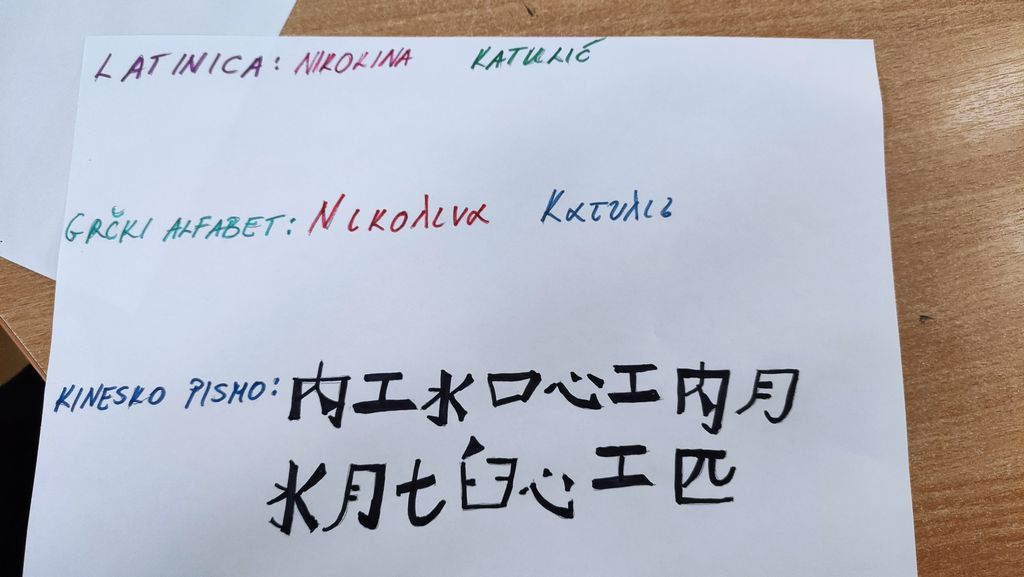 LATINICA: NIKOLINA KATULIĆ
GRČKI ALFABET: Νικολινα Κατυλις
KINESKO PISMO: 内工水口心工内月
水月七臼心工匹